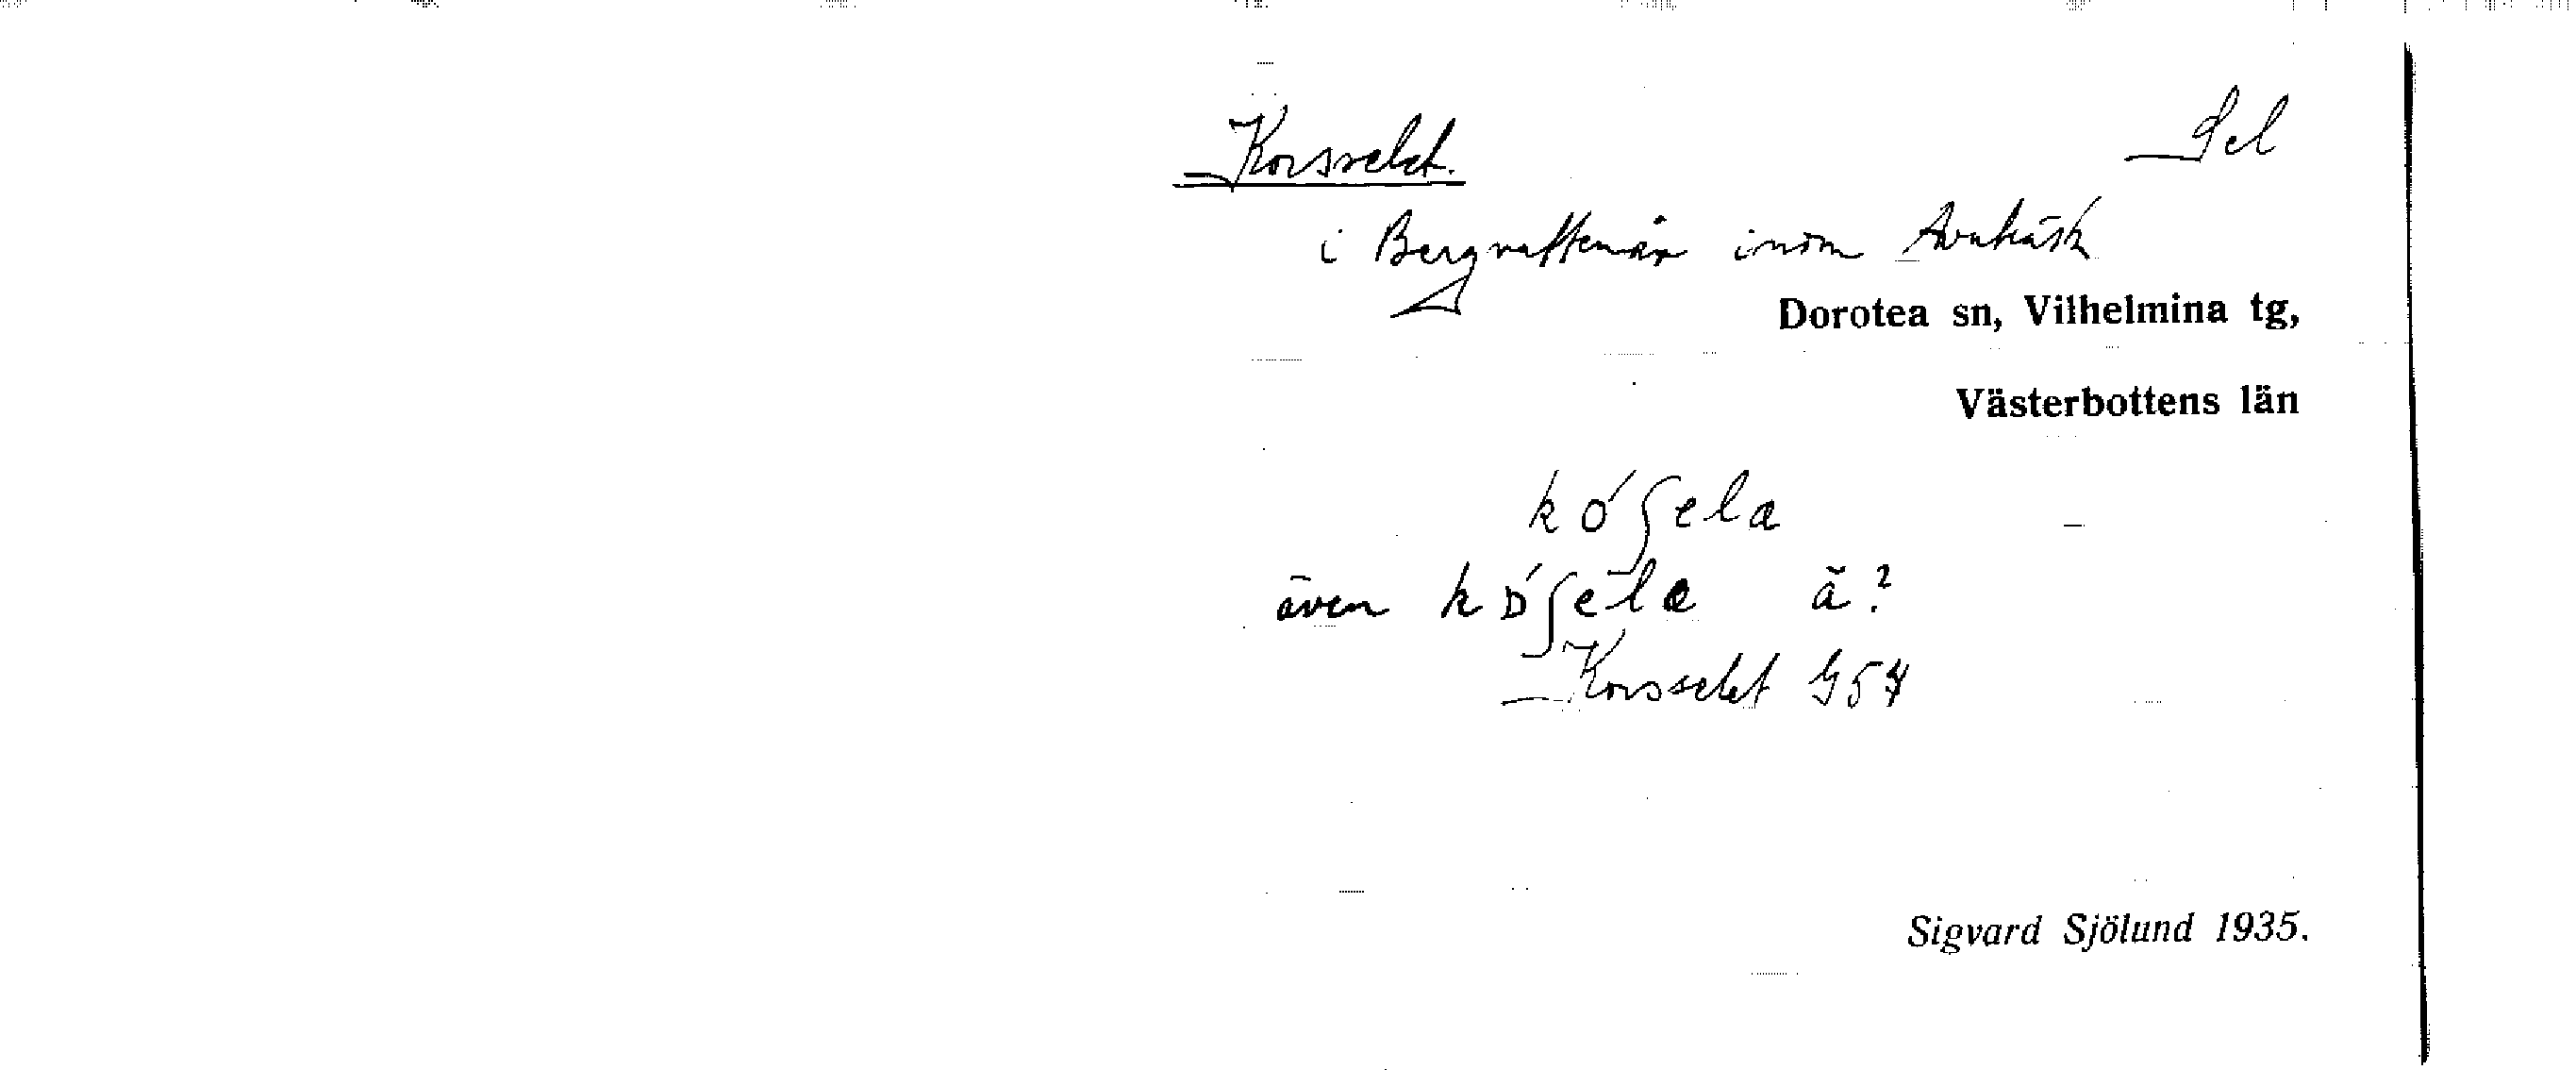 Korsselet. Sel
i Bergvattenån inom Avaträsk
Dorotea sn, Vilhelmina tg,
Västerbottens län
kóʃela
även kóʃela ã?
Korsselet G57
Sigvard Sjölund 1935.